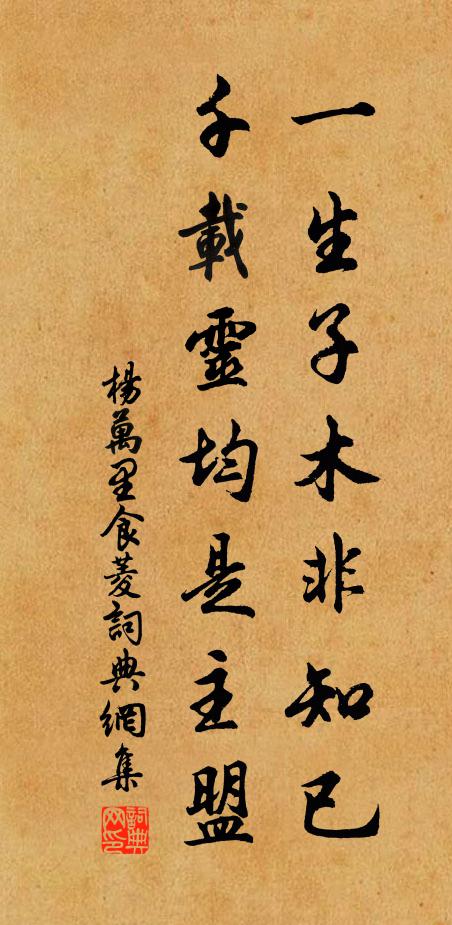 一生子木非知已
千載靈均是主盟
楊萬里食菱詞典網集
詞典網印